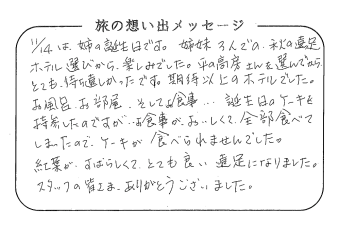 旅の想い出メッセージ
11/14は、姉の誕生日です。姉妹3人での、秋の遠足
ホテル選びから、楽しみでした。 の高房さんを選んでから、
とても、待ち遠しかったです。期待以上のホテルでした。
お風呂、お部屋、そしてお食事… 誕生日のケーキを
持参したのですが、お食事が、おいしくて、全部食べて
しまったので、ケーキが食べられませんでした。
紅葉が、すばらしくて、とても良い遠足になりました。
スタッフの皆さま、ありがとうございました。